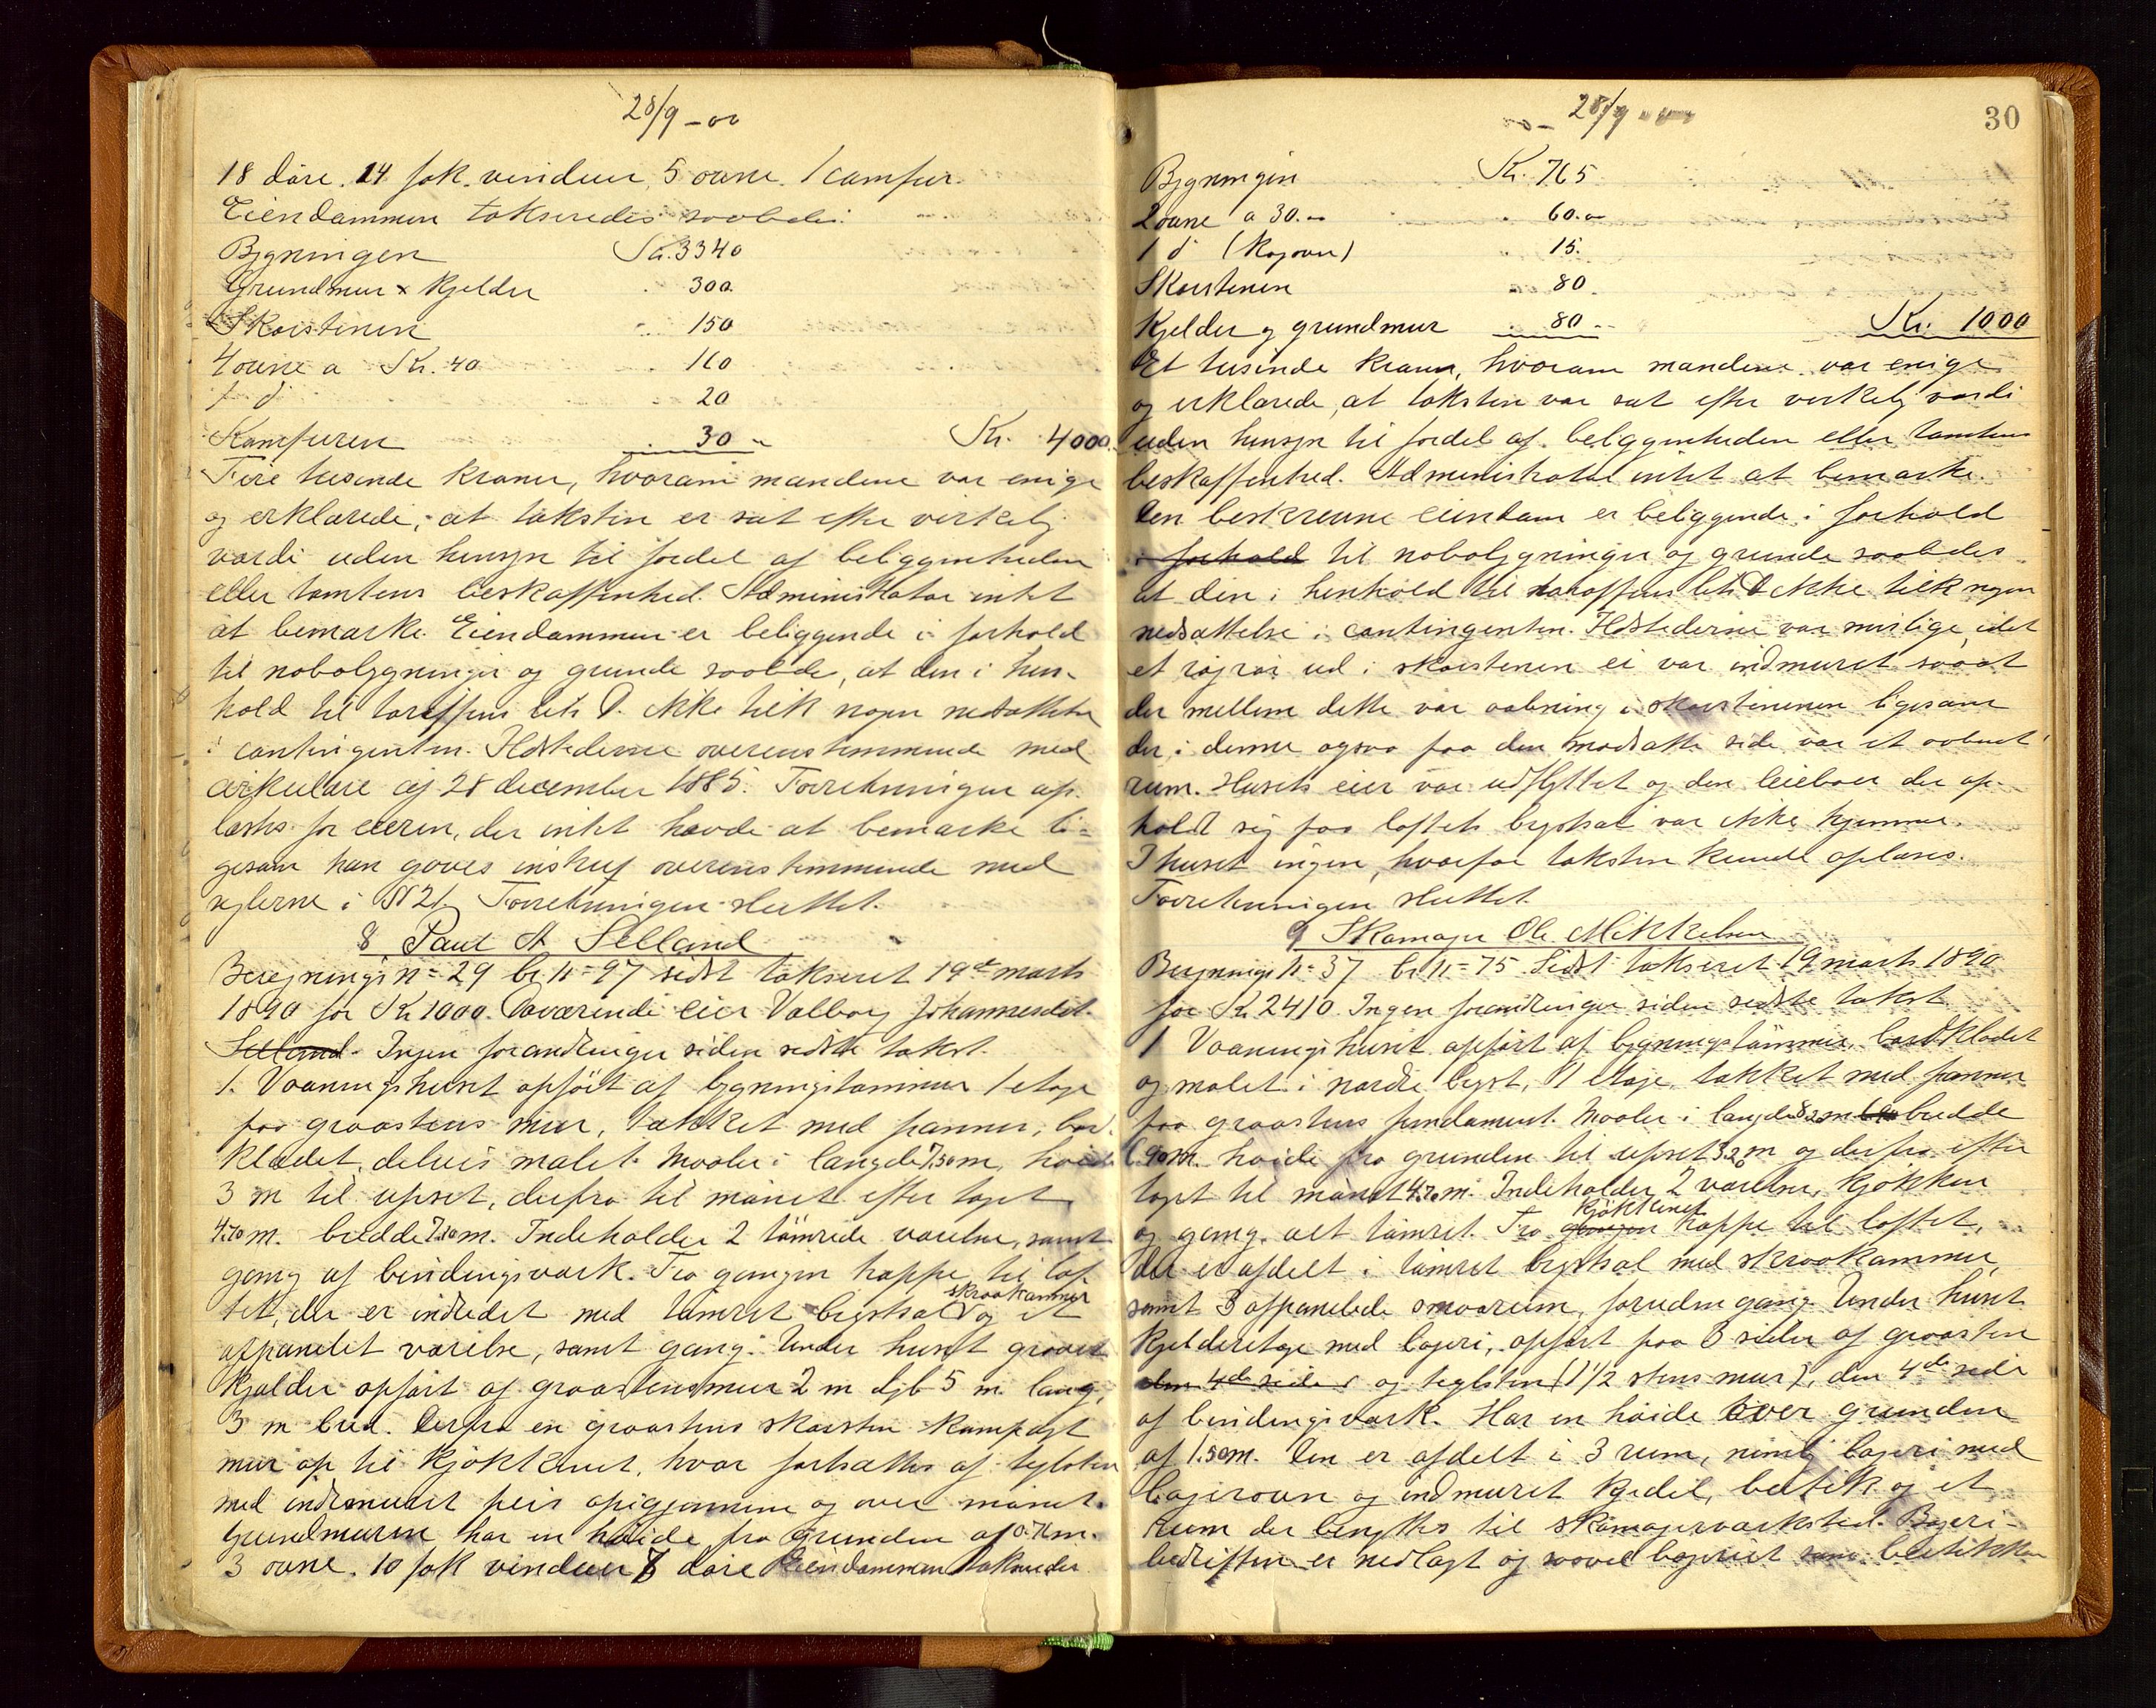 28/9 - 00
18 døre. 24 fak. vinduer, 5 ovne. 1 camfur.
Eiendommen takseredes saaledes:
Bygningen Kr. 3340
Grundmur & kjelder 300
Skorstenen 150
4 ovne a Kr. 40 160
1 d 20
Komfuren 30 Kr. 4000.
Fire tusende kroner, hvorom mændene var enige
og erklærede, at taksten er sat efter virkelig
værdi uden hensyn til fordel af beliggenheden
eller tomtens beskaffenhed. Administrator intet
at bemærke. Eiendommen er beliggende i forhold
til nabobygninger og grunde saaledes, at den i hen-
hold til tariffens lit. D. ikke fik nogen nedsættelse
i contingenten. Ildstederne overensstemmende med
cirkulære af 28 december 1885. Forretningen op-
læstes for eieren, der intet havde at bemærke li-
gesom han gaves inskrip overensstemmende med
reglerne i § 21. Forretningen sluttet.
8 Paul A Selland
Beregnings n= 29 br n= 97 sidst takseret 19de marts
1890 for Kr 1000. Daværende eier Valborg Johannesdt.
Selland. Ingen forandringer siden sidste takst.
1. Vaaningshuset opført af bygningstømmer 1 etage
paa graastens mur, tækket med panner, bord-
klædet, delvis malet. Maaler i længde 7.50m, høide
3 m til upset, derfra til mønet efter taget
4.70 m. bredde 7.20m. Indeholder 2 tømrede værelser, samt
gang af bindingsværk. Fra gangen trappe til lof-
tet, der er indredet med tømret kvistsal skraakammer og et
afpanelet værelse, samt gang. Under huset gravet
kjælder opført af graastensmur 2 m dyb 5 m lang,
3 m bred. Derfra en graastens skorsten kompagt
mur op til kjøkkenet, hvor fortsættes af teglsten
med indemuret peis opigjennem og over mønet.
Grundmuren har en høide fra grunden af 0.70m.
3 ovne. 10 fak vinduer 8 døre Eiendommen takseredes
28/9 - 00
30
Bygningen Kr. 765
2 ovne a 30.- 60.-
1 d (kogovn) 15.
Skorstenen 80
Kjelder og grundmur 80 Kr. 1000
Et tusinde kroner, hvorom mændene var enige
og erklærede, at taksten var sat efter virkelig værdi
uden hensyn til fordel af beliggenheden eller tomtens
beskaffenhed. Administrator intet at bemærke.
Den beskrevne eiendom er beliggende i forhold
i forhold til nabobygninger og grunde saaledes
at den i henhold til tariffens lit. D ikke fik nogen
nedsættelse i contingenten. Ildstederne var mislige, idet
et røgrør ud i skorstenen ei var indmuret saaat
der mellem dette var aabning i skorstenen ligesom
der i denne ogsaa paa den modsatte side var et aabent
rum. Husets eier var udflyttet og den leieboer der op-
holdt sig paa loftets kvistsal var ikke hjemme.
I huset ingen, hvorfor taksten kunde oplæses.
Forretningen sluttet.
9 Skomager Ole Mikkelsen
Beregnings n= 37 br n= 75 Sidst takseret 19 marts 1890
for Kr 2410. Ingen forandringer siden sidste takst.
1 Vaaningshuset opført af bygningstømmer, bordklædet
og malet i nordre kvist, 1 etage, tækket med panner
paa graastens fundament. Maaler i længde 8.20m 6.90 bredde
6.90m. høide fra grunden til upset 3.20m og derfra efter
taget til mønet 4.70m. Indeholder 2 værelser, kjøkken
og gang, alt tømret. Fra gangen kjøkkenet trappe til loftet,
der er afdelt i tømret kvistsal med skraakammer,
samt 3 afpanelede smaarum, foruden gang. Under huset
kjelderetage med bageri, opført paa 3 sider af graasten
den 4de side og teglsten (1 1/2 stens mur), den 4de side
af bindingsværk. Har en høide over grunden
af 1.50m. Den er afdelt i 3 rum, nemlig bageri med
bagerovn og indmuret kjedel, butik og et
rum der benyttes til skomagerværksted. Bageri-
bedriften er nedlagt og saavel bageriet som butikken